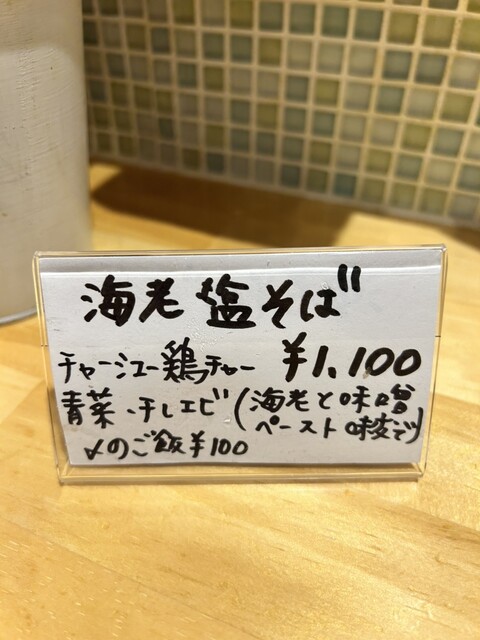 海老塩そば
チャーシュー鶏チャー ¥1,100
青菜、干しエビ(海老と味噌
ペースト味変で)
〆のご飯¥100